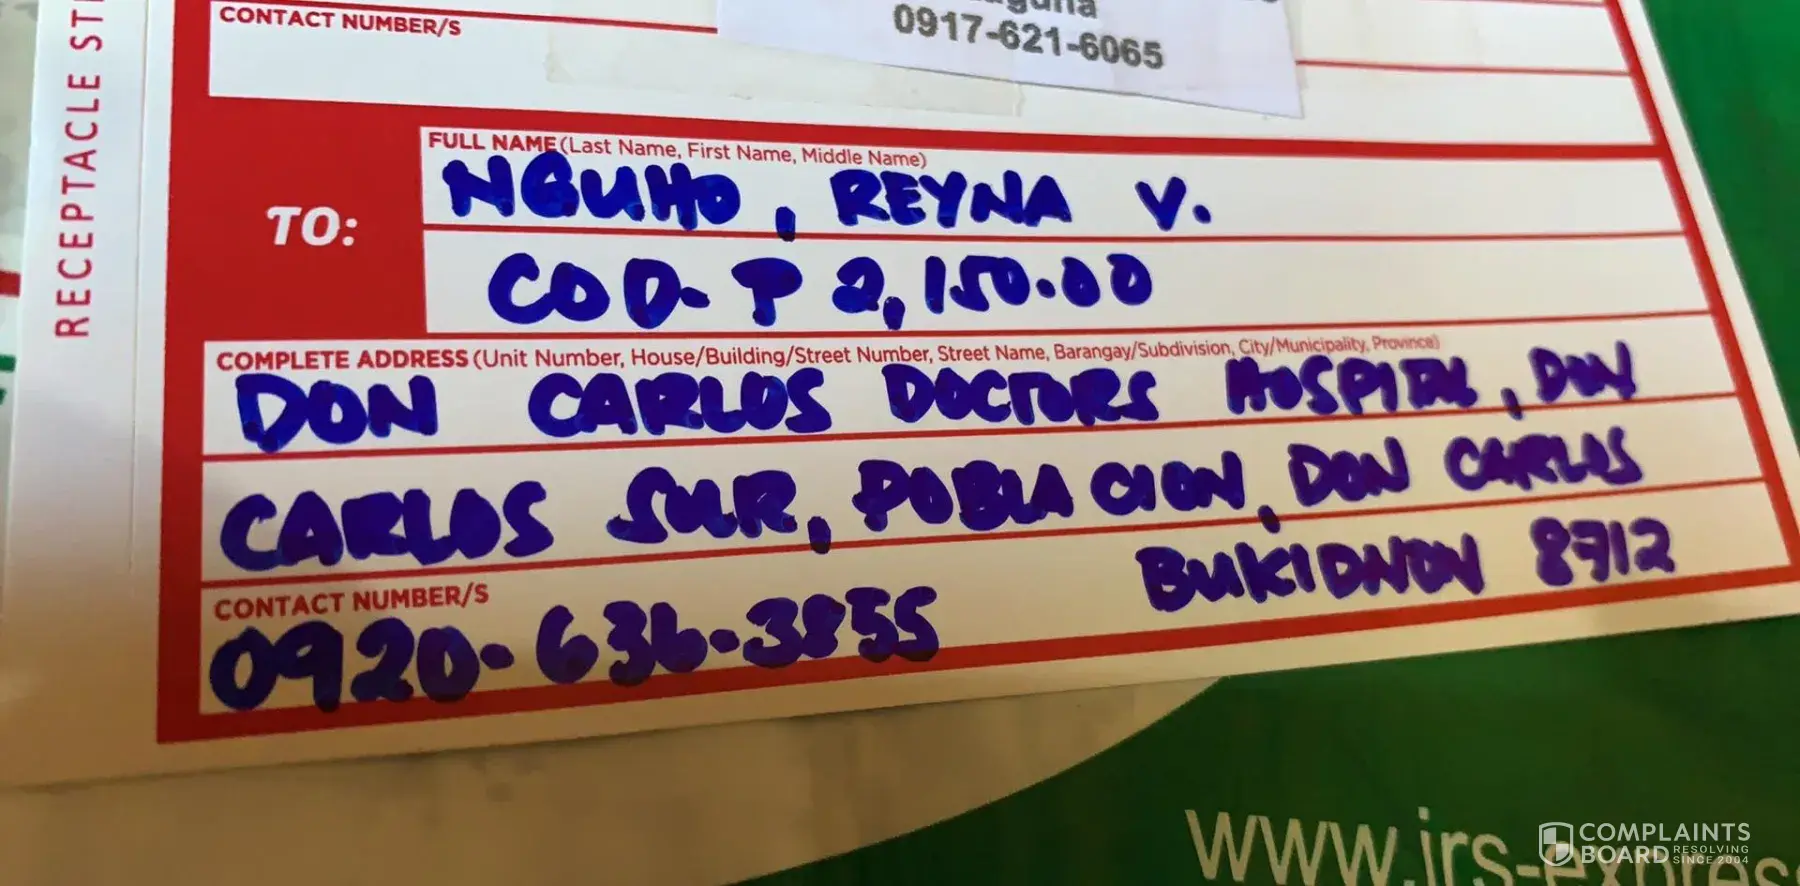 RECEPTACLE
CONTACT NUMBER/S
0917-621-6065
TO:
FULL NAME (Last Name, First Name, Middle Name)
NGUHO, REYNA V.
COD-₱ 2,150.00
COMPLETE ADDRESS (Unit Number, House/Building/Street Number, Street Name, Barangay/Subdivision, City/Municipality, Province)
DON CARLOS DOCTORS HOSPITAL, DON
CARLOS SUR, POBLACION, DON CARLOS
BUKIDNON 8712
CONTACT NUMBER/S
0920-636-3855
COMPLAINTS
BOARD RESOLVING
SINCE 2004